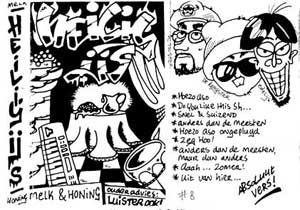 MELK
HEILIGIJS!
HONING
HEILIG
IJS
MELK & HONING
oudoradvies:
LUISTER OOK!
* Horzo aso
* Snel & Suizend
* anders dan de meesten
* Horzo aso ongeplugd
* zeg Hoo!
* anders dan de meesten,
maar dan anders
* daah... Zomer!
* uit van hier...
#8
ABSOLUUT
VERS!